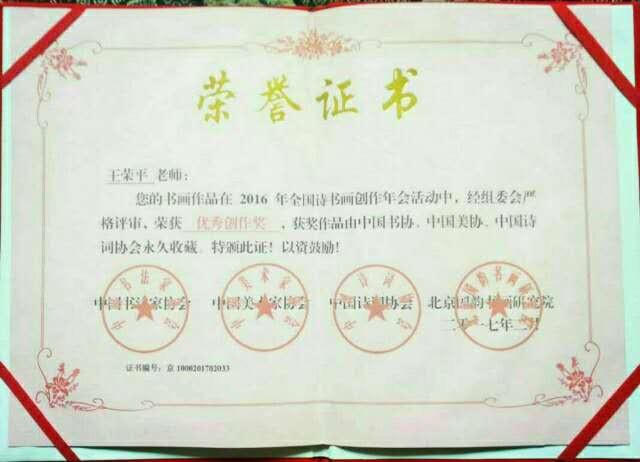 荣誉证书
王荣平 老师：
您的书画作品在 2016 年全国诗书画创作年会活动中，经组委会严
格评审、荣获 优秀创作奖 ，获奖作品由中国书协、中国美协、中国诗
词协会永久收藏。特颁此证！以资鼓励！
中国书法家协会 中国美术家协会 中国诗词协会 北京国韵书画研究院
二零一七年二月
证书编号：京 1000201702033